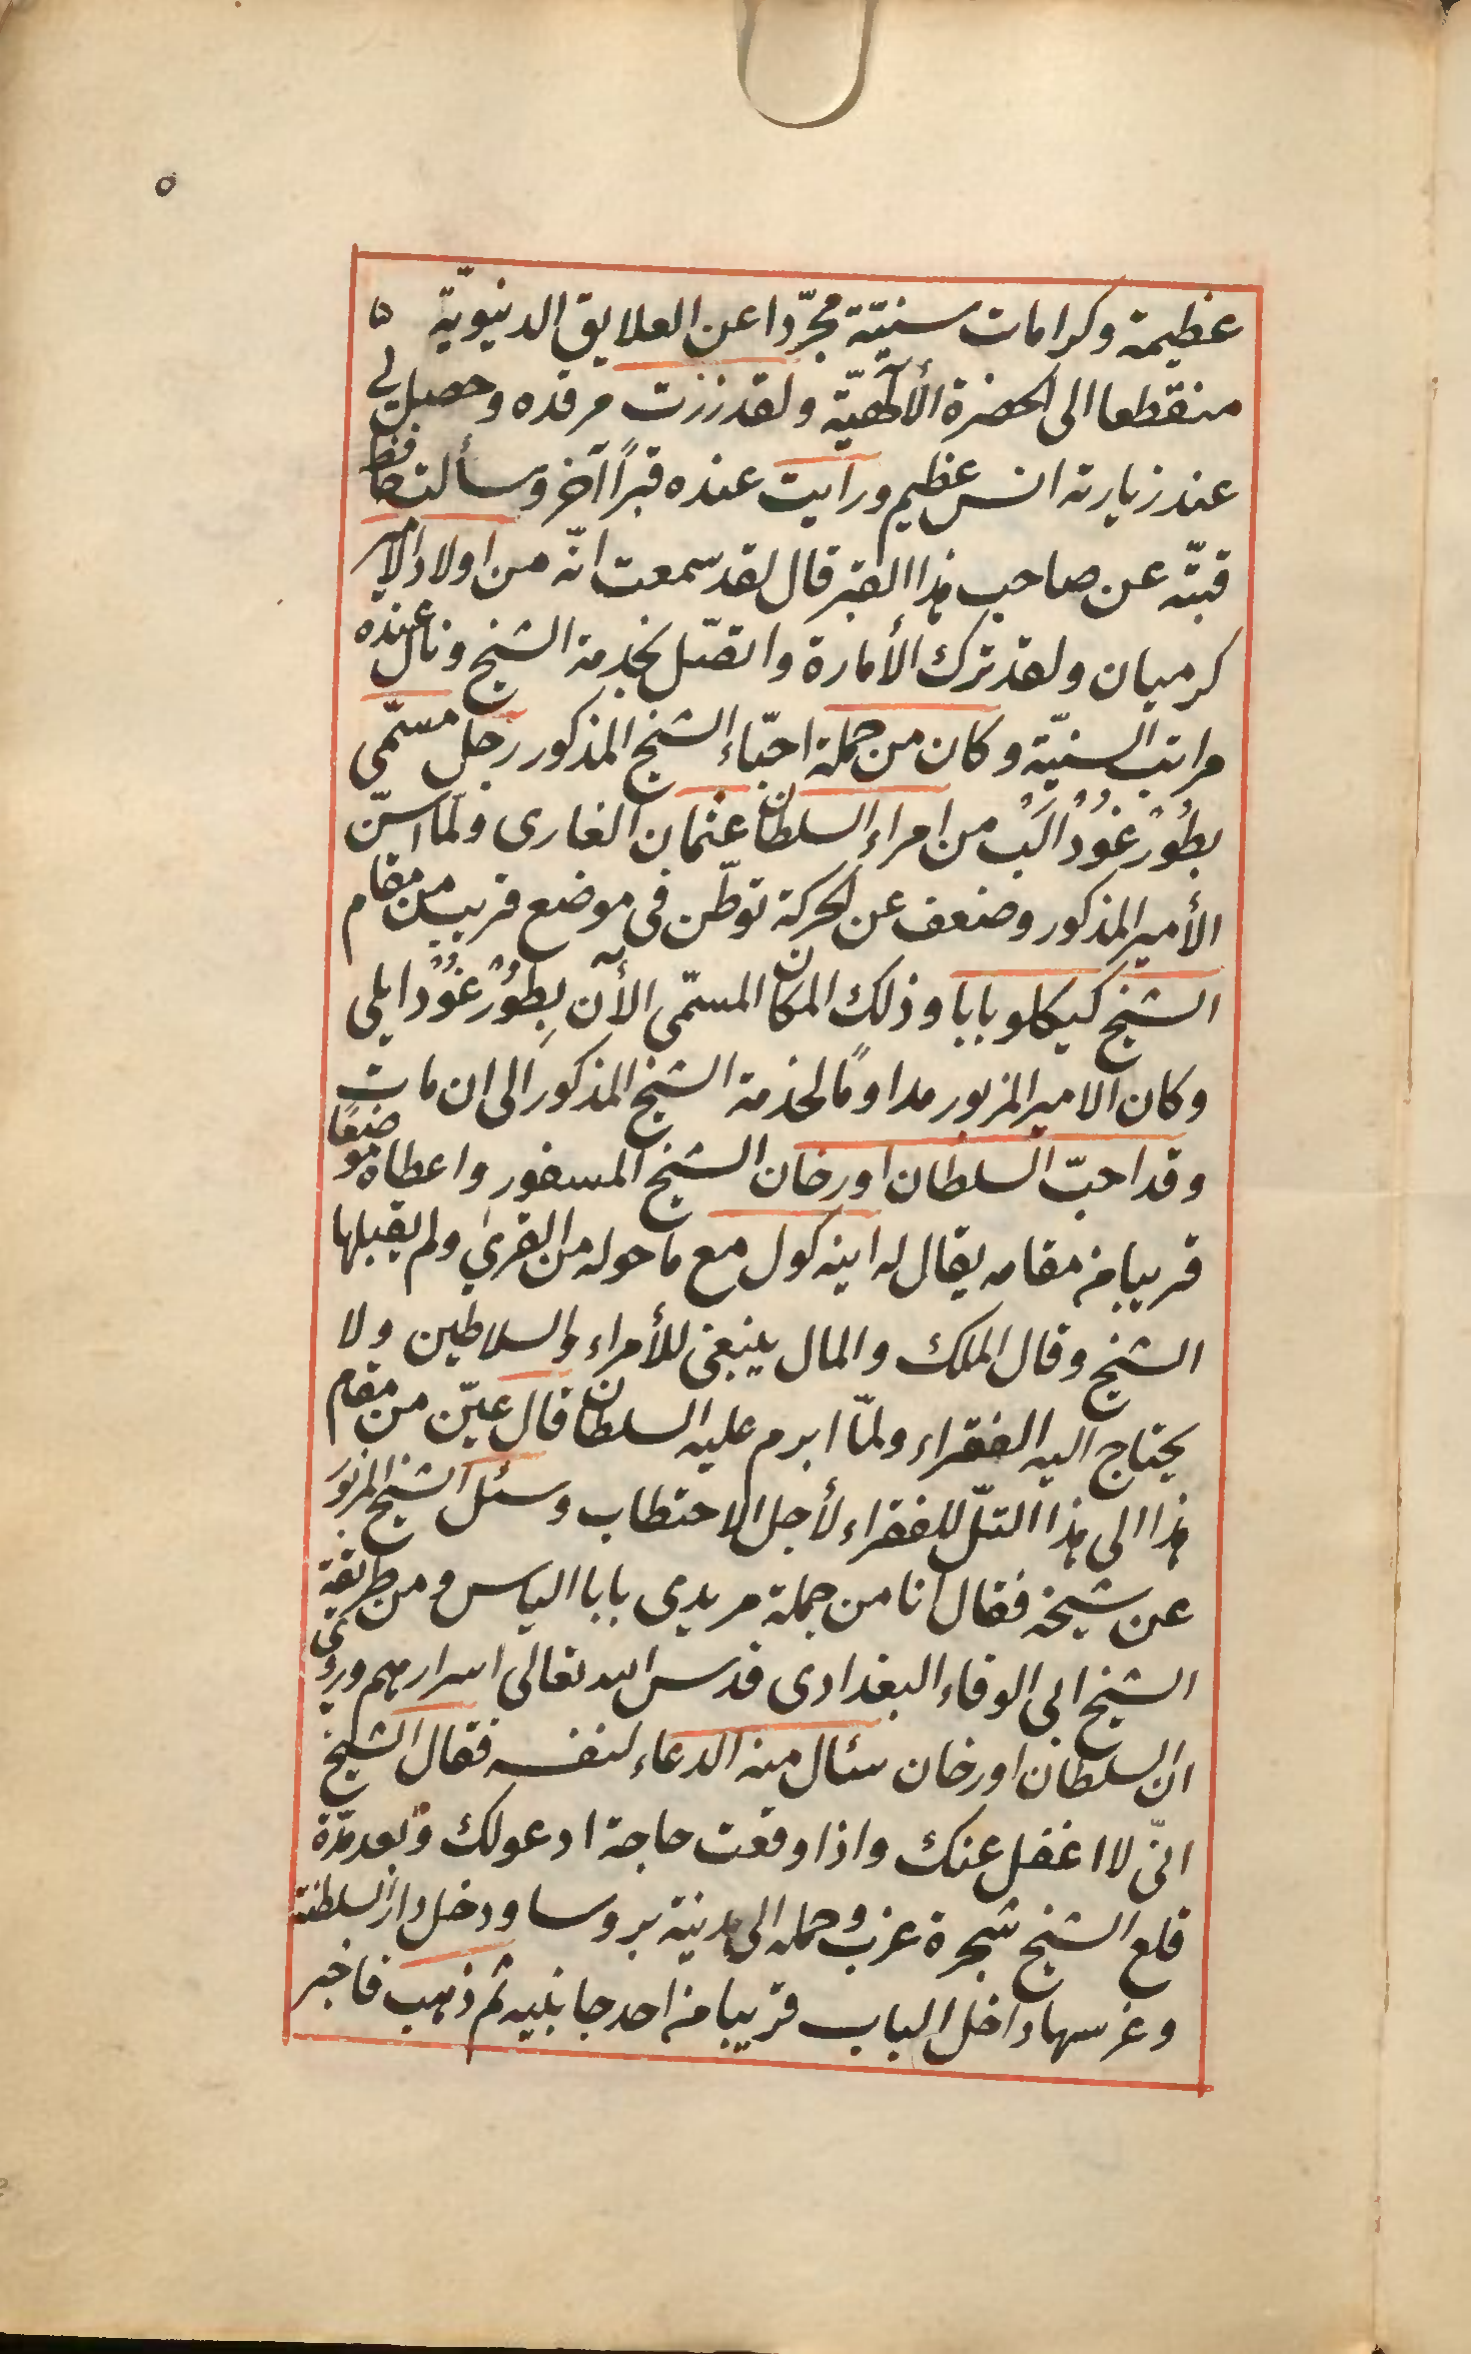 ٥
عظيمة وكرامات سنيّة مجرّدا عن العلايق الدنيويّة
منقطعا الى الحضرة الألٓهيّة ولقد زرت مرقده وحصل لى
عند زيارته انس عظيم ورايت عنده قبراً آخر وسألت حافظ
قبّته عن صاحب هذا القبر قال لقد سمعت انّه من اولاد الامير
كرميان ولقد ترك الأمارة واتصّل بخدمة الشيخ ونال عنده
مراتب السنيّة وكان من جملة احبّاء الشيخ المذكور رجل مسمّى
بطُورْغُودْ اَلبْ من امراء السلطان عثمان الغازى ولمّا اسنّ
الأمير المذكور وضعف عن الحركة توطّن فى موضع قريب من مقام
الشيخ كيكلو بابا وذلك المكان المسمّى الأٓن بِطُورْغُودْ ايلى
وكان الامير المزبور مداوماً لخدمة الشيخ المذكور الى ان مات
وقد احبّ السلطان اورخان الشيخ المسفور واعطاه موضعًا
قريبا من مقامه يقال له اينه كول مع ما حوله من القرىٰ ولم يقبلها
الشيخ وقال الملك والمال ينبغى للأمراء والسلاطين ولا
يحتاج اليه الفقراء ولمّا ابرم عليه السلطان قال عيّن من مقام
هذا الى هذا التلّ للفقراء لأجل الاحتطاب وسئل الشيخ المزبور
عن شيخه فقال انا من جملة مريدى بابا الياس ومن طريقة
الشيخ ابى الوفاء البغدادى قدس الله تعالى اسرارهم وروى
انّ السلطان اورخان سئال منه الدعاء لنفسه فقال الشيخ
انّى لا اغفل عنك واذا وقعت حاجة ادعولك وبعد مدّة
قلع الشيخ شجرة عزب وحمله الى مدينة بروسا ودخل دار السلطنة
وغرسها داخل الباب قريبا من احد جانبيه ثم ذهب فاخبر